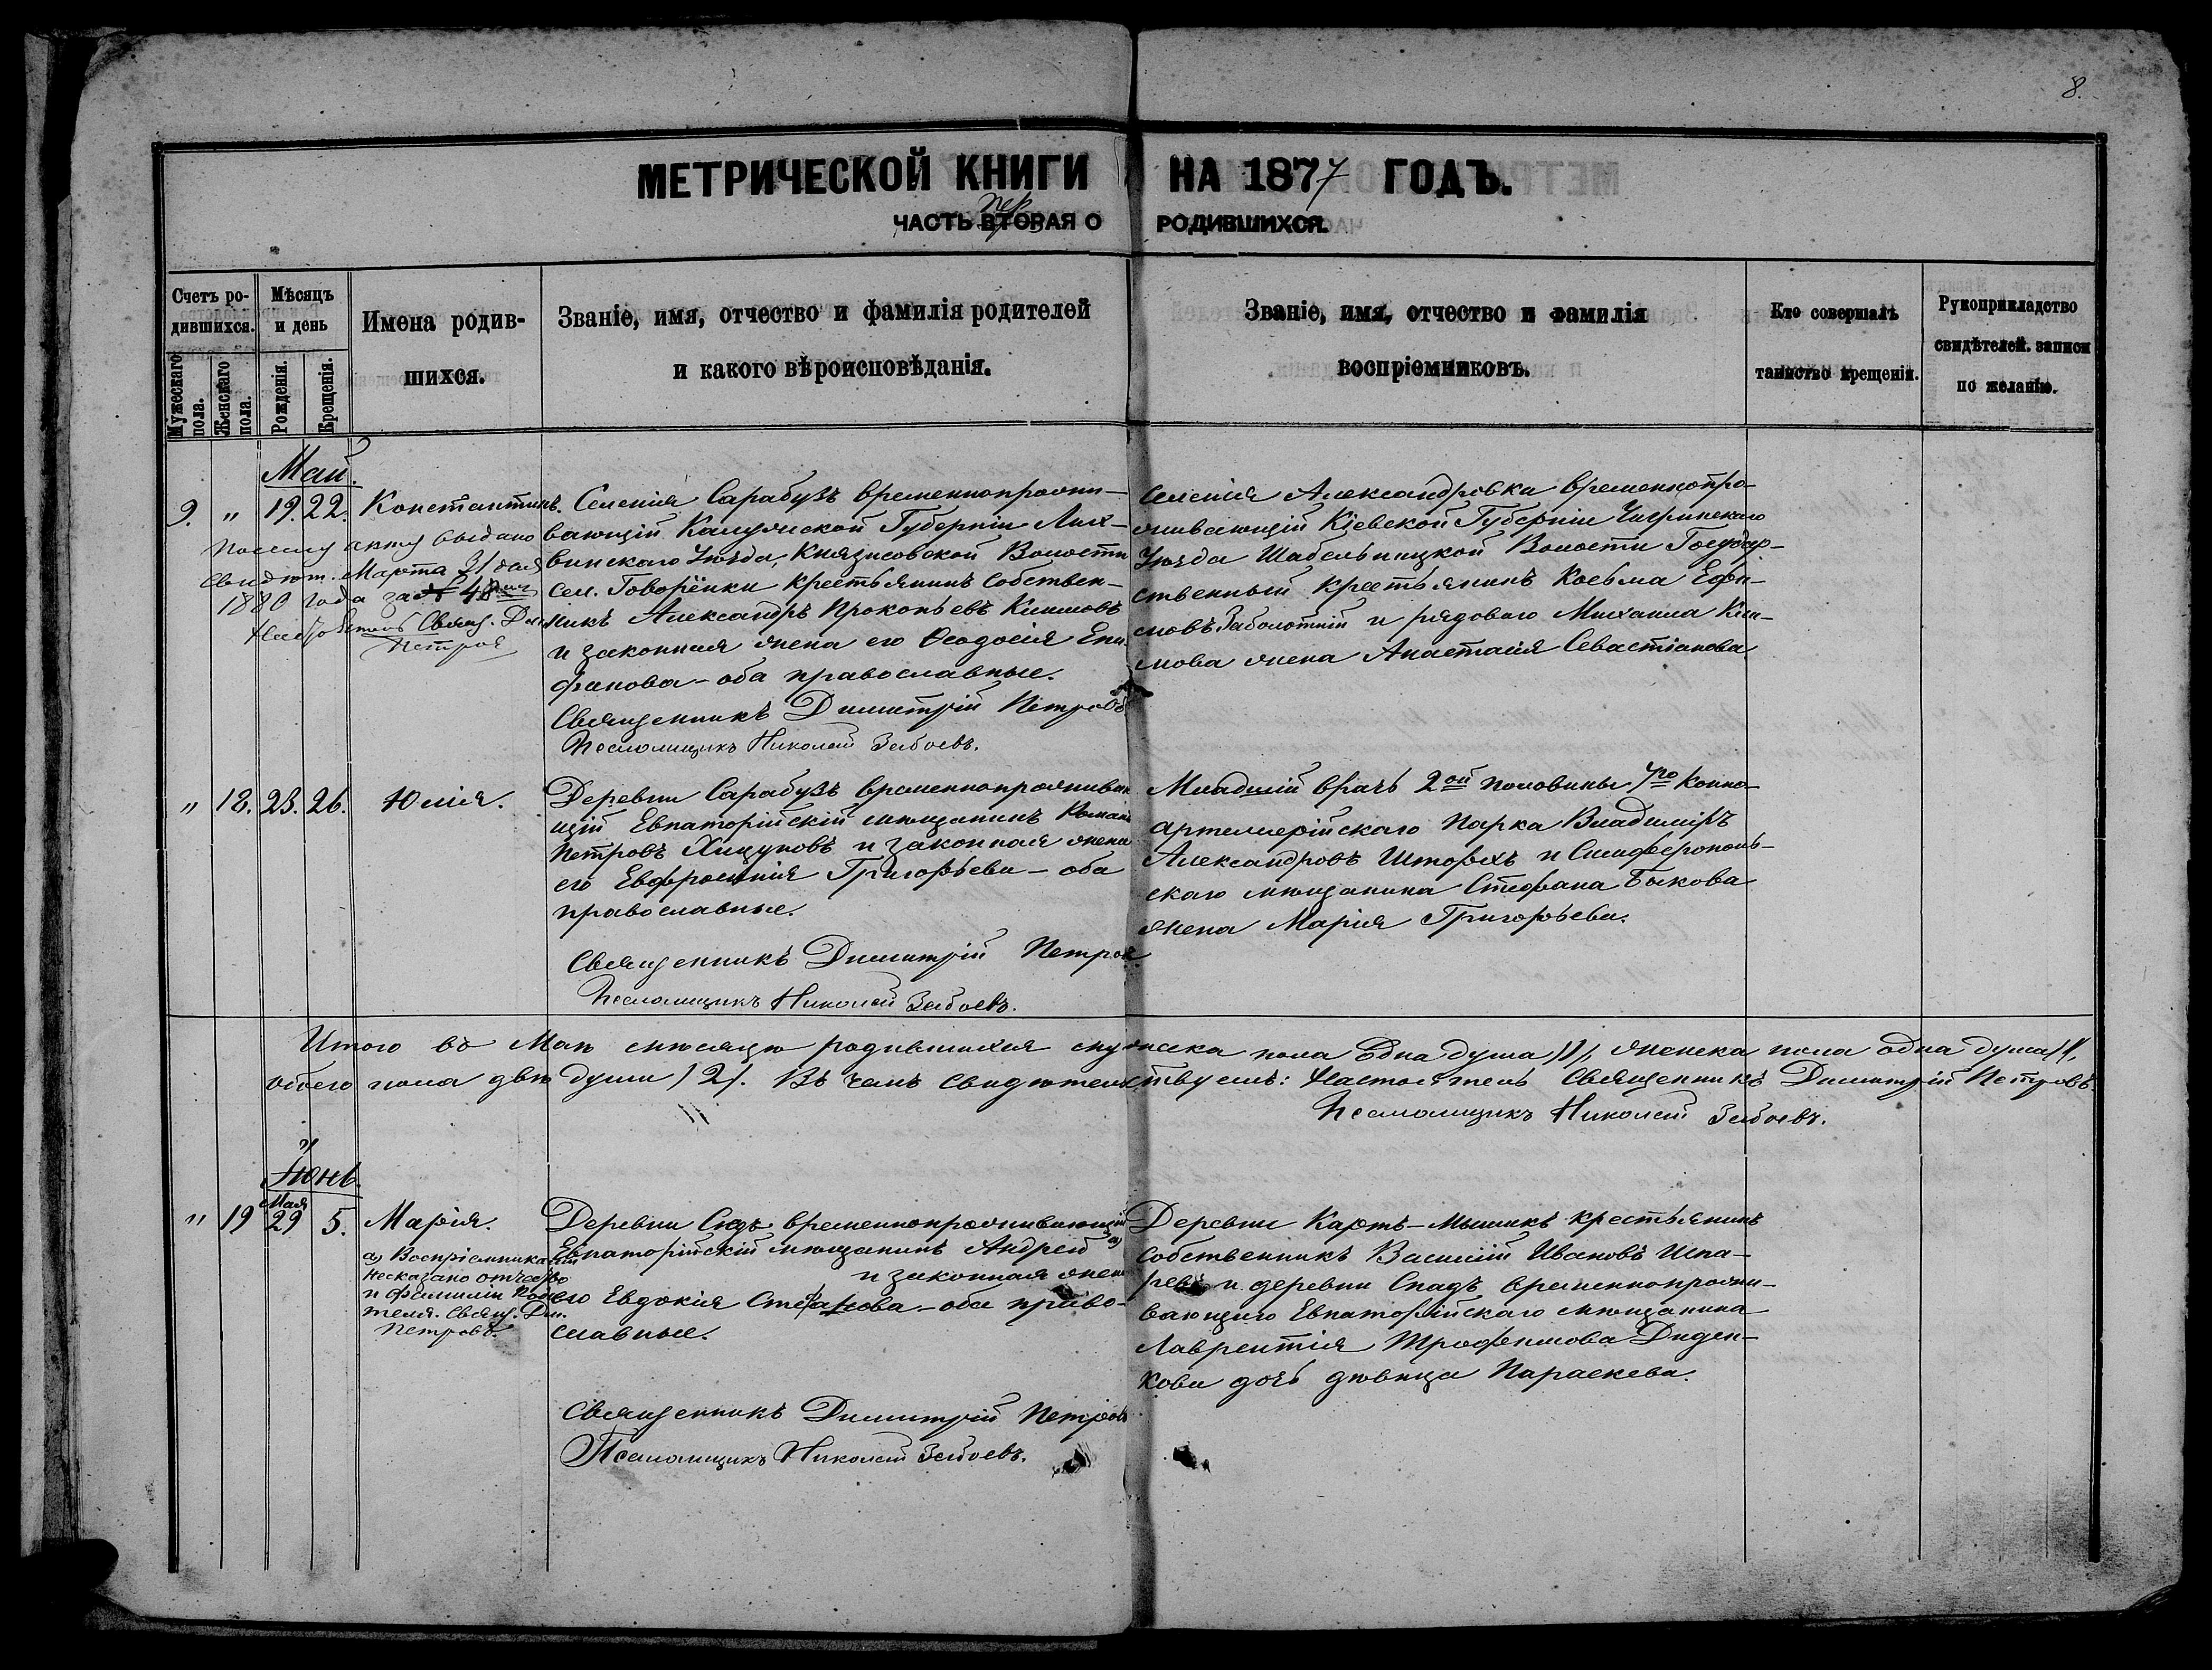 8.
МЕТРИЧЕСКОЙ КНИГИ НА 1877 ГОДЪ.
пер
ЧАСТЬ ВТОРАЯ О РОДИВШИХСЯ.
Счетъ ро-
дившихся.
Мужескаго пола.
Женскаго пола.
Мѣсяцъ
и день
Рожденія.
Крещенія.
Имена родив-
шихся.
Званіе, имя, отчество и фамилія родителей
и какого вѣроисповѣданія.
Званіе, имя, отчество и фамилія
воспріемниковъ.
Кто совершалъ
таинство крещенія.
Рукоприкладство
свидѣтелей записи
по желанію.
Май.
9. " 19. 22. Константинъ.
По сему акту выдано
свидѣт. Марта 31 дня
1880 года за № 48
Настоятель Свящ. Дим.
Петровъ
Селенія Сарабузъ временнопрожи-
вающій Калужской Губерніи Лих-
винскаго Уѣзда, Князисовской Волости
сел. Говорёнки крестьянинъ собствен-
никъ Александръ Прокопьевъ Климовъ
и законная жена его Ѳеодосія Епи-
фанова - оба православные.
Священникъ Димитрій Петровъ
Псаломщикъ Николай Забоевъ.
Селенія Александровка временнопро-
живающій Кіевской Губерніи Чигринскаго
Уѣзда Шабельницкой Волости Государ-
ственный крестьянинъ Косьма Ефи-
мовъ Заболотній и рядоваго Михаила Кли-
мова жена Анастасія Севастіанова.
" 18. 23. 26. Юлія.
Деревни Сарабузъ временнопроживаю-
щій Евпаторійскій мѣщанинъ Романъ
Петровъ Хицуновъ и законная жена
его Евфросинія Григорьева - оба
православные.
Священникъ Димитрій Петровъ
Псаломщикъ Николай Забоевъ.
Младшій врачъ 2ой половины 7го Конно-
артиллерійскаго Парка Владиміръ
Александровъ Шторхъ и Симферополь-
скаго мѣщанина Стефана Быкова
жена Марія Григорьева.
Итого въ Маѣ мѣсяцѣ родившихся мужеска пола одна душа /1/, женска пола одна душа /1/,
обоего пола двѣ души /2/. Въ чемъ свидѣтельствуемъ: Настоятель Священникъ Димитрій Петровъ
Псаломщикъ Николай Забоевъ.
Іюнь.
" 19 Мая 29 5. Марія.
а) Воспріемника
несказано отчество
и фамиліи
Свящ. Дим.
Петровъ.
Деревни временнопроживающій
Евпаторійскій мѣщанинъ Андрей а)
и законная жена
его Евдокія Стефанова - оба право-
славные.
Священникъ Димитрій Петровъ
Псаломщикъ Николай Забоевъ.
Деревни Картъ-Мышикъ крестьянинъ
собственникъ Василій Ивановъ Шпа-
ревъ и деревни Спадъ временнопрожи-
вающаго Евпаторійскаго мѣщанина
Лаврентія Трофимова Диден-
кова дочь дѣвица Параскева.